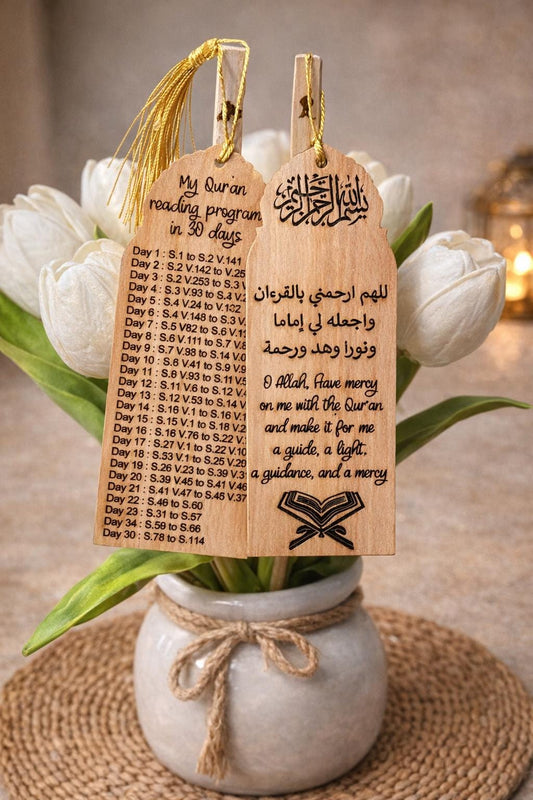 My Qur'an
reading program
in 30 days
Day 1 : S.1 to S.2 V.141
Day 2 : S.2 V.142 to V.25
Day 3 : S.2 V.253 to S.3 V
Day 4 : S.3 V.93 to S.4 V.2
Day 5 : S.4 V.24 to V.132
Day 6 : S.4 V.148 to S.3 V
Day 7 : S.5 V82 to S.6 V.1
Day 8 : S.6 V.111 to S.7 V.8
Day 9 : S.7 V.98 to S.14 V.
Day 10 : S.8 V.41 to S.9 V.9
Day 11 : S.8 V.93 to S.11 V.5
Day 12 : S.11 V.6 to S.12 V.
Day 13 : S.12 V.53 to S.14 V
Day 14 : S.16 V.1 to S.16 V.
Day 15 : S.15 V.1 to S.18 V.
Day 16 : S.16 V.76 to S.22 V.
Day 17 : S.27 V.1 to S.22 V.10
Day 18 : S.53 V.1 to S.25 V.29
Day 19 : S.26 V.23 to S.39 V.3
Day 20 : S.39 V.45 to S.41 V.46
Day 21 : S.41 V.47 to S.45 V.37
Day 22 : S.46 to S.60
Day 23 : S.31 to S.57
Day 34 : S.59 to S.66
Day 30 : S.78 to S.114
بسم الله الرحمن الرحيم
للهم ارحمني بالقرءان
واجعله لي إماما
ونورا وهد ورحمة
O Allah, Have mercy
on me with the Qur'an
and make it for me
a guide, a light,
a guidance, and a mercy